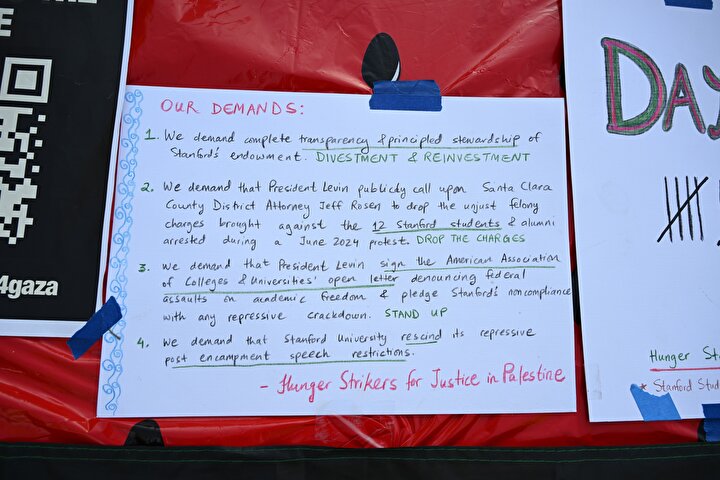 E
4gaza
OUR DEMANDS:
1. We demand complete transparency & principled stewardship of
Stanford's endowment. DIVESTMENT & REINVESTMENT
2. We demand that President Levin publicly call upon Santa Clara
County District Attorney Jeff Rosen to drop the unjust felony
charges brought against the 12 Stanford students & alumni
arrested during a June 2024 protest. DROP THE CHARGES
3. We demand that President Levin sign the American Association
of Colleges & Universities' open letter denouncing federal
assaults on academic freedom & pledge Stanford's noncompliance
with any repressive crackdown. STAND UP
4. We demand that Stanford University rescind its repressive
post encampment speech restrictions.
- Hunger Strikers for Justice in Palestine
DAY
Hunger St
* Stanford Stud